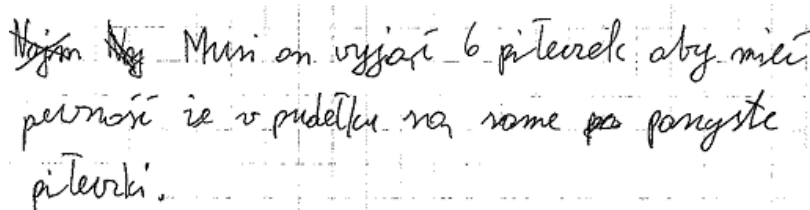 Musi on wyjąć 6 piłeczek aby mieć
pewność że w pudełku są same parzyste
piłeczki.